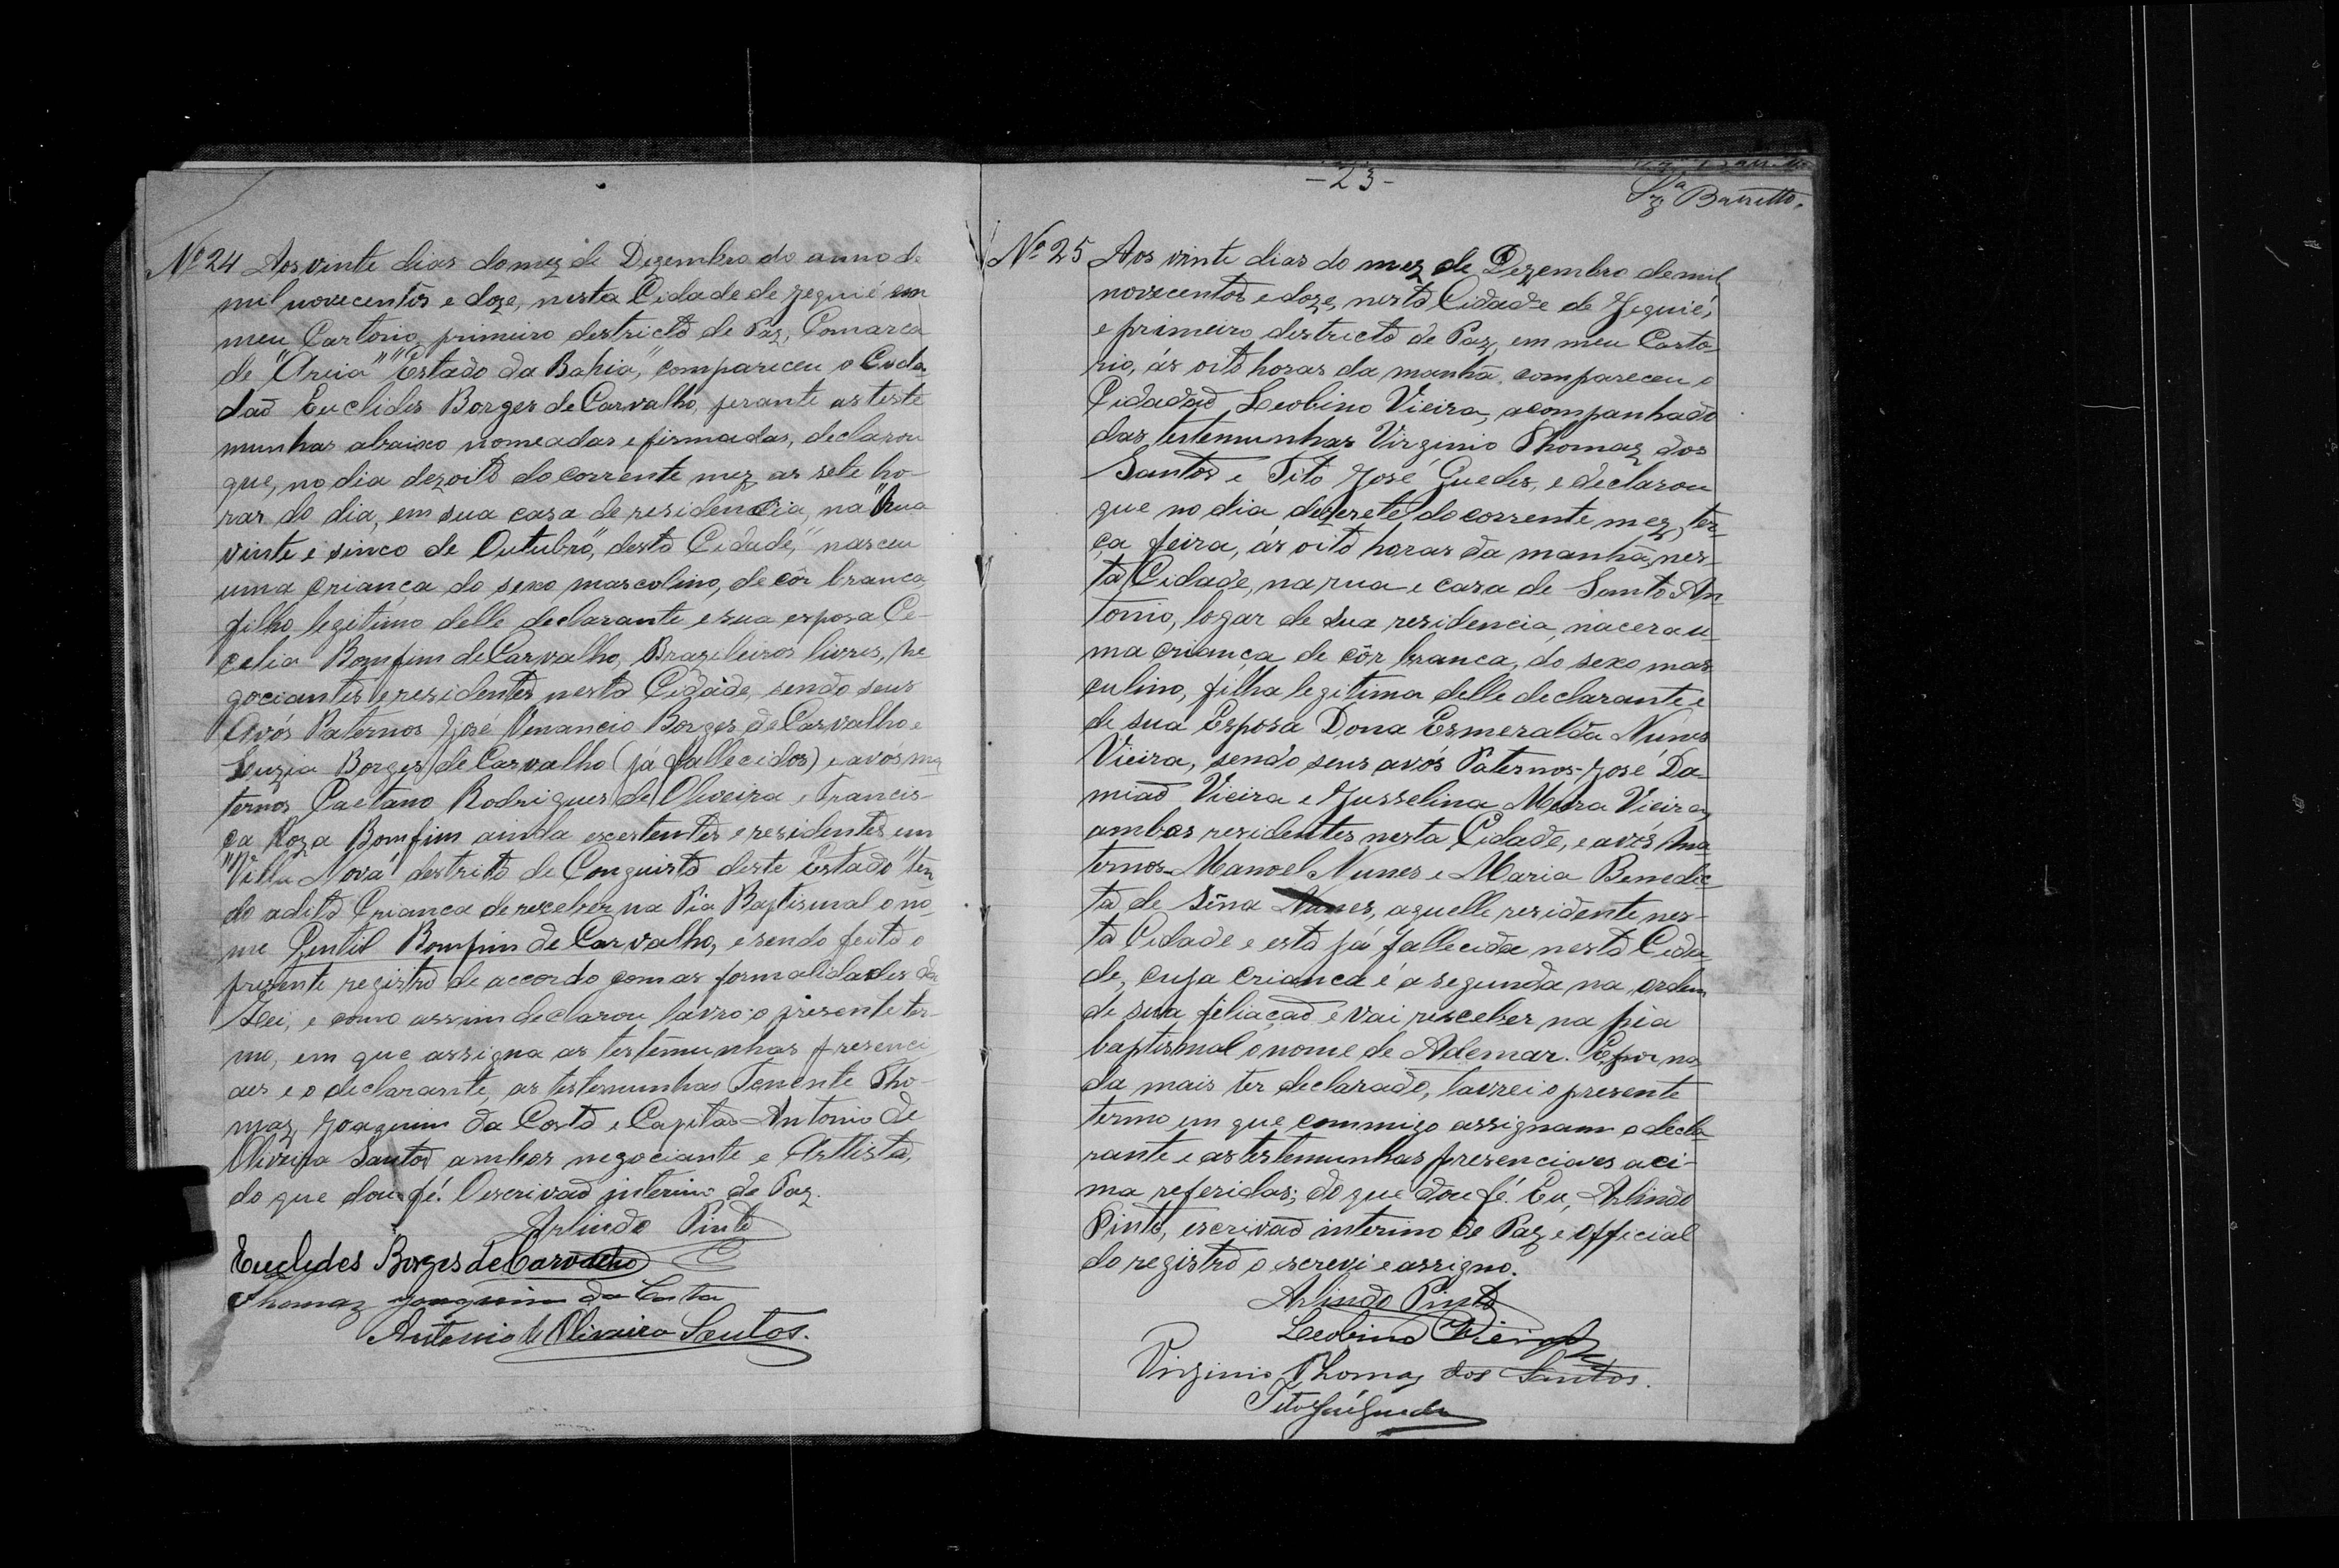 Nº 24 Aos vinte dias do mez de Dezembro do anno de
mil novecentos e doze, nesta Cidade de Jequié em
meu Cartorio, primeiro destricto de Paz, Comarca
de "Areia" "Estado da Bahia", compareceu o Cida
daõ Euclides Borges de Carvalho, perante as teste
munhas abaixo nomeadas e firmadas, declarou
que, no dia dezoito do corrente mez as sete ho-
ras do dia, em sua casa de residencia, na "Rua
vinte e sinco de Outubro", desta Cidade," nasceu
uma criança do sexo mascolino, de côr branca
filho legitimo delle declarante e sua esposa Ce-
celia Bomfim de Carvalho, Brazileiros livres, ne
gociantes e residentes nesta Cidade, sendo seus
Avós Paternos José Venancio Borges de Carvalho e
Luzia Borges de Carvalho (já fallecidos) e avós ma
ternos Caetano Rodrigues de Oliveira e Francis-
ca Roza Bomfim ainda excertentes e residentes em
"Villa Nova" destrito de Conquista deste Estado "ten
do a dita Criança de receber na Pia Baptismal o no-
me Gentil Bomfim de Carvalho, e sendo feito o
presente registro de accordo com as formalidades da
Lei, e como assim declarou lavro o presente ter-
mo, em que assigna as testemunhas presenci
aes e o declarante, as testemunhas Tenente Tho-
maz Joaquim da Costa e Capitaõ Antonio de
Oliveira Santos ambos negociante e Arttista,
do que dou fé. O escrivaõ interino de Paz.
Arlindo Pinto
Euclides Borges de Carvalho
Thomaz Joaquim da Costa
Antonio de Oliveira Santos.
-23-
Barretto.
Nº 25 Aos vinte dias do mez de Dezembro de mil
novecentos e doze, nesta Cidade de Jequié,
e primeiro destricto de Paz, em meu Carto-
rio, ás oito horas da manhã, compareceu o
Cidadaõ Leobino Vieira, acompanhado
das testemunhas Virginio Thomaz dos
Santos e Tito José Guedes, e declarou
que no dia dezesete do corrente mez, ter-
ça feira, ás oito horas da manhã, nes-
ta Cidade, na rua e casa de Santo An
tonio, logar de sua residencia, nacera u-
ma criança de côr branca, do sexo mas
culino, filha legitima delle declarante e
de sua Esposa Dona Esmeralda Nunes
Vieira, sendo seus avós Paternos-José Da-
miaõ Vieira e Jusselina Meira Vieira,
ambos residentes nesta Cidade, e avós ma
ternos-Manoel Nunes e Maria Benedic
ta de Sena Nunes, aquelle residente nes-
ta Cidade e esta já fallecida nesta Cida-
de, cuja criança é a segunda na ordem
de sua filiaçaõ e vai receber na pia
baptismal o nome de Ademar. E por na
da mais ter declarado, lavrei o presente
termo em que commigo assignam o decla
rante e as testemunhas presenciaes aci-
ma referidas; do que dou fé. Eu, Arlindo
Pinto, escrivaõ interino de Paz e official
do registro o escrevi e assigno.
Arlindo Pinto
Leobino Vieira
Virginio Thomaz dos Santos.
Tito José Guedes